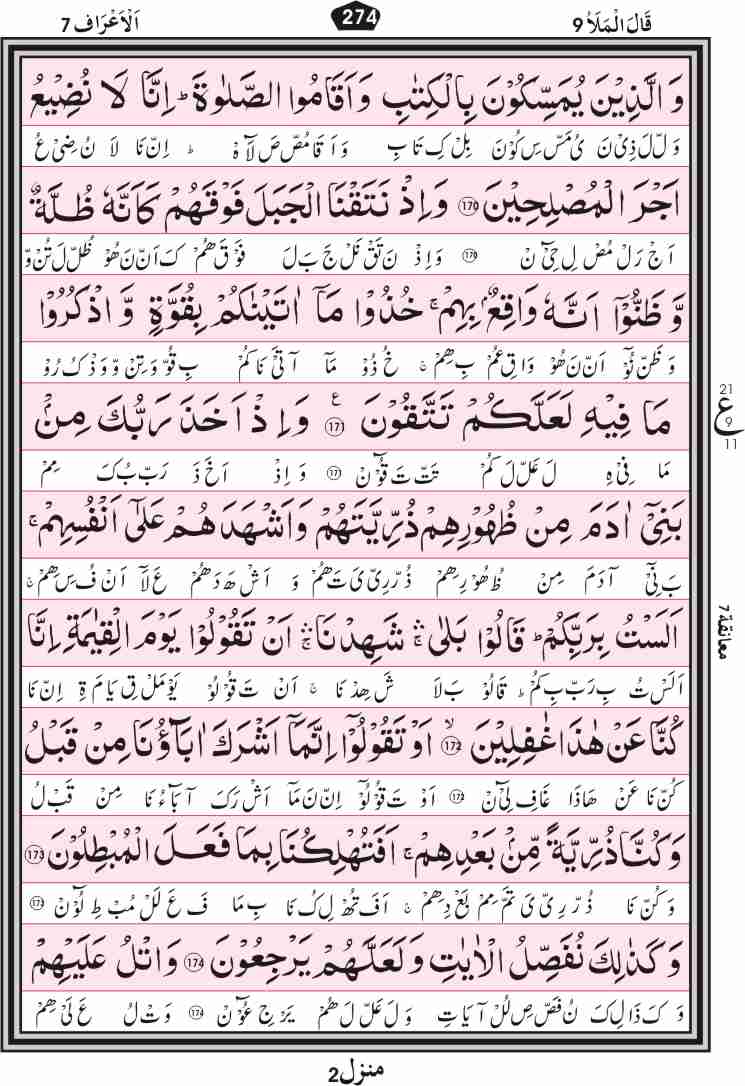 قَالَ الْمَلَاُ 9
274
اَلْاَعْرَاف 7
وَ الَّذِيْنَ يُمَسِّكُوْنَ بِالْكِتٰبِ وَاَقَامُوا الصَّلٰوةَ ؕ اِنَّا لَا نُضِيْعُ
وَ لّ لَ ذِیْ نَ یُ مَسّ سِ کُوْنَ بِلْ کِ تَابِ وَ اَ قَا مُصّ صَ لَاۃَ ؕ اِنّ نَا لَا نُ ضِیْ عُ
اَجْرَ الْمُصْلِحِيْنَ ﴿170﴾ وَاِذْ نَتَقْنَا الْجَبَلَ فَوْقَهُمْ كَاَنَّهٗ ظُلَّةٌ
اَجْ رَلْ مُصْ لِ حِیْٓ نْ ﴿170﴾ وَ اِ ذْ نَ تَقْ نَلْ جَ بَ لَ فَوْ قَ ھُمْ کَ اَنّ نَ ھُوْ ظُلّ لَ تُنْ وّ
وَّ ظَنُّوْۤا اَنَّهٗ وَاقِعٌۢ بِهِمْ ۚ خُذُوْا مَاۤ اٰتَيْنٰكُمْ بِقُوَّةٍ وَّ اذْكُرُوْا
وَ ظَنّ نُوْٓ اَنّ نَ ھُوْ وَا قِ عُمْ بِ ھِمْ ۚ خُ ذُوْ مَآ آ تَیْ نَا کُمْ بِ قُوّ وَ تِنْ وّ وَ ذْ کُ رُوْ
مَا فِيْهِ لَعَلَّكُمْ تَتَّقُوْنَ ﴿171﴾ ع وَ اِذْ اَخَذَ رَبُّكَ مِنْۢ
مَا فِیْ ہِ لَ عَلّ لَ کُمْ تَتّ تَ قُوْٓ نْ ﴿171﴾ وَ اِ ذْ اَ خَ ذَ رَبّ بُ کَ مِمْ
21
ع
9
11
بَنِيْۤ اٰدَمَ مِنْ ظُهُوْرِهِمْ ذُرِّيَّتَهُمْ وَاَشْهَدَهُمْ عَلٰۤى اَنْفُسِهِمْ ۚ
بَ نِیْٓ آ دَمَ مِنْ ظُ ھُوْ رِ ھِمْ ذُرّ رِیّ یَ تَ ھُمْ وَ اَشْ ھَ دَ ھُمْ عَ لَآ اَنْ فُ سِ ھِمْ ۚ
اَلَسْتُ بِرَبِّكُمْ ؕ قَالُوْا بَلٰى ۛۚ شَهِدْنَا ۛۚ اَنْ تَقُوْلُوْا يَوْمَ الْقِيٰمَةِ اِنَّا
اَلَسْ تُ بِ رَبّ بِ کُمْ ؕ قَالُوْ بَ لَا شَ ھِدْ نَا ۚ اَنْ تَ قُوْ لُوْ یَوْ مَلْ قِ یَا مَ ۃِ اِنّ نَا
معانقة 7
كُنَّا عَنْ هٰذَا غٰفِلِيْنَ ﴿172﴾ ۙ اَوْ تَقُوْلُوْۤا اِنَّمَاۤ اَشْرَكَ اٰبَآؤُنَا مِنْ قَبْلُ
کُنّ نَا عَنْ ھَاذَا غَافِ لِیْٓ نْ ﴿172﴾ اَوْ تَ قُوْ لُوْٓ اِنّ نَ مَآ اَشْ رَ کَ آ بَآءُ نَا مِنْ قَبْ لُ
وَكُنَّا ذُرِّيَّةً مِّنْۢ بَعْدِهِمْ ۚ اَفَتُهْلِكُنَا بِمَا فَعَلَ الْمُبْطِلُوْنَ ﴿173﴾
وَ کُنّ نَا ذُرّ رِیّ یَ تَمّ مِمْ بَعْ دِھِمْ ۚ اَ فَ تُھْ لِ کُ نَا بِ مَا فَ عَ لَلْ مُبْ طِ لُوْٓنْ ﴿173﴾
وَ كَذٰلِكَ نُفَصِّلُ الْاٰيٰتِ وَلَعَلَّهُمْ يَرْجِعُوْنَ ﴿174﴾ وَاتْلُ عَلَيْهِمْ
وَ کَ ذَا لِ کَ نُ فَصّ صِ لُلْ آ یَا تِ وَ لَ عَلّ لَ ھُمْ یَرْ جِ عُوْٓ نْ ﴿174﴾ وَ تْ لُ عَ لَیْ ھِمْ
منزل 2